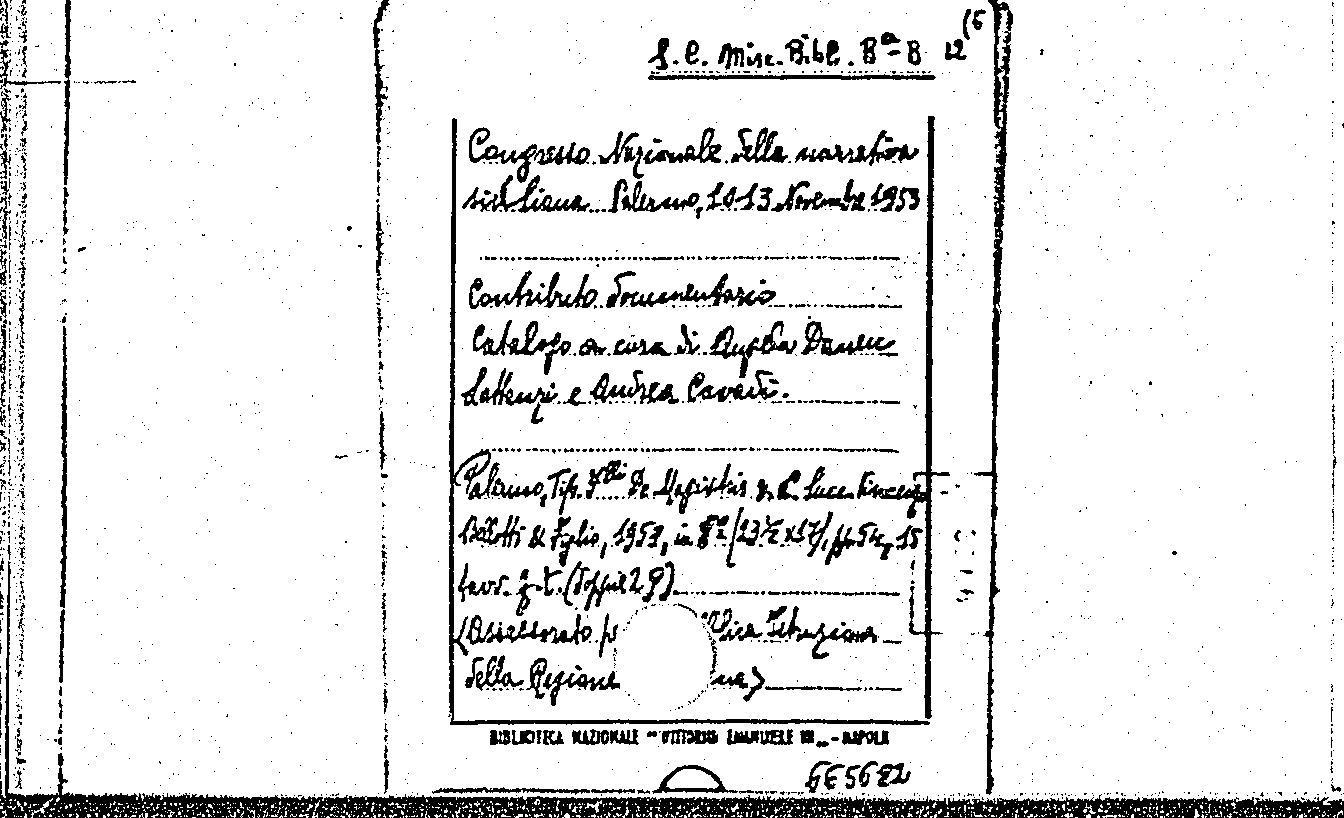 (5
S. C. Misc. Bibl. Bª-B 12
Congresso Nazionale della narrativa
siciliana. Palermo, 10-13 Novembre 1953
Contributo documentario
Catalogo a cura di Angela Daneu
Lattanzi e Andrea Cavadi.
Palermo, Tip. F.lli De Magistris & C. Succ. Vincenzo
Bellotti & Figlio, 1953, in 8° (23½x17), pp. 54, 15
tavv. f. t. (doppie 2,
(Assessorato p lica Istruzione
della Regione na)
BIBLIOTECA NAZIONALE "VITTORIO EMANUELE III" - NAPOLI